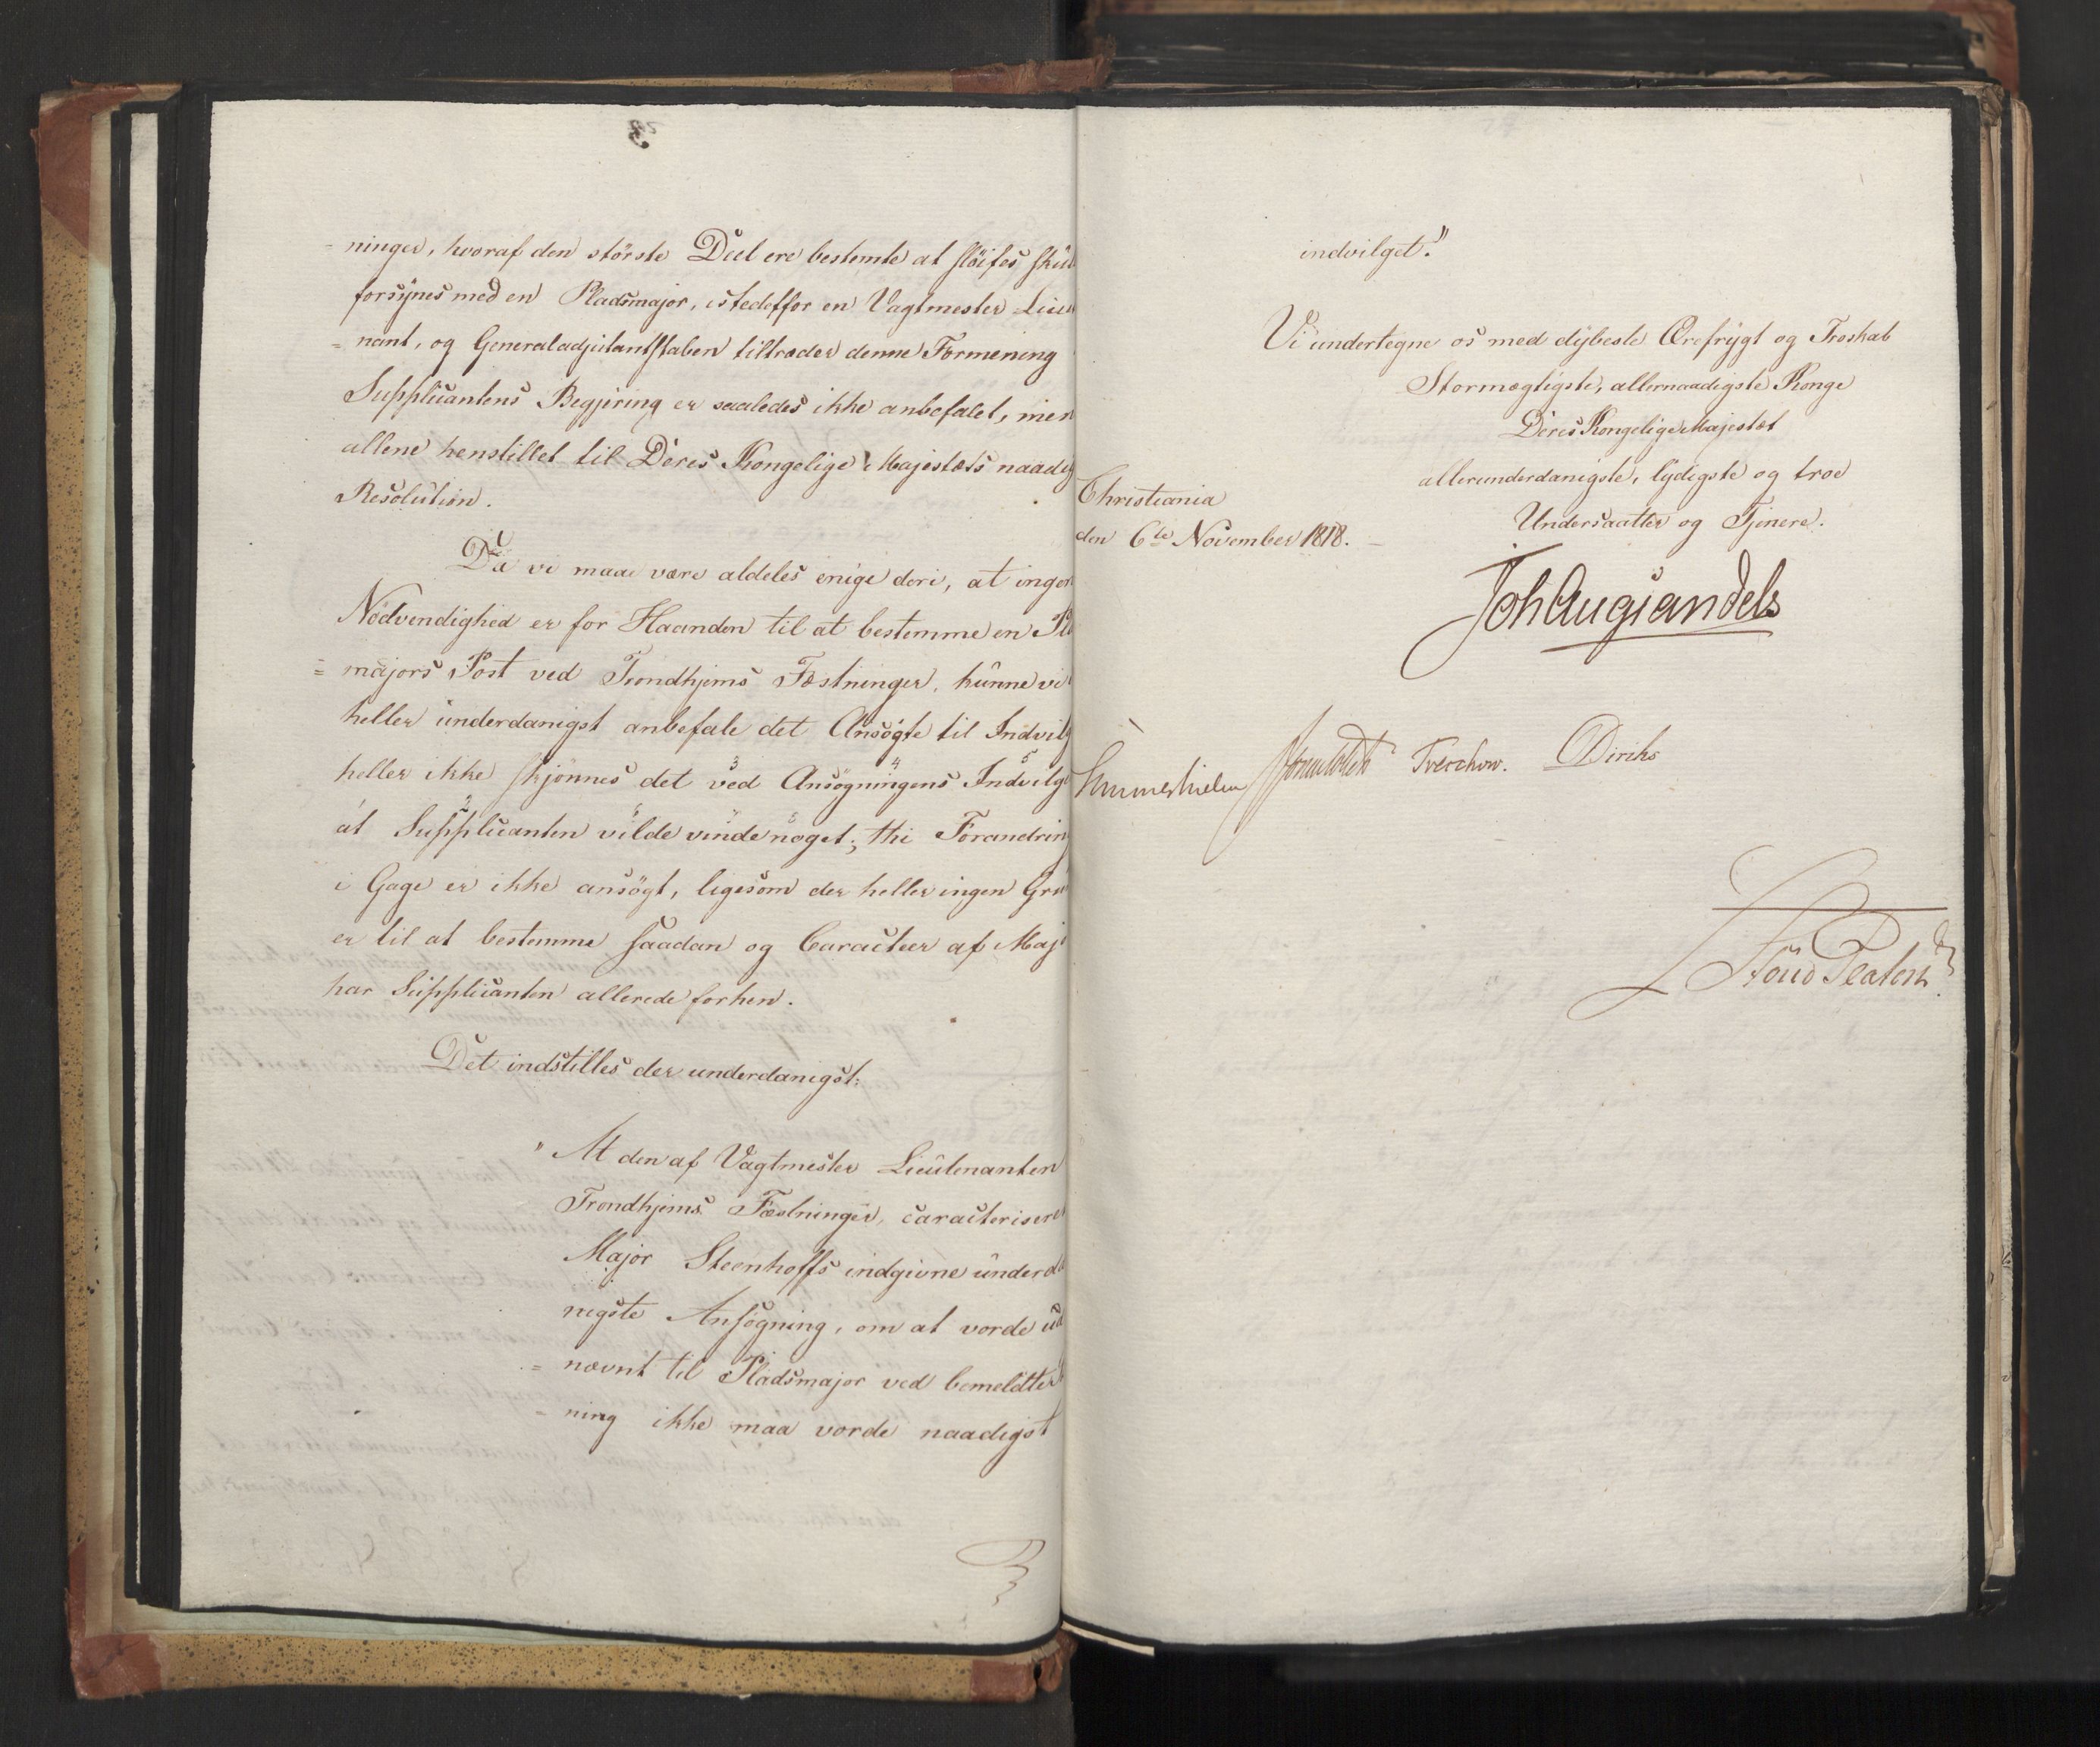 = ninger, hvoraf den störste Deel ere bestemte at slöifes
forsynes med en Pladsmajor, istedetfor en Vagtmester Lieu
= nant, og Generaladjutantstaben tiltræder denne Formening
Supplicantens Begjering er saaledes ikke anbefalet, men
allene henstillet til Deres Kongelige Majestæts naadig
Resolution.
Da vi maae være aldeles enige deri, at ingen
Nödvendighed er for Haanden til at bestemme en
= majors Post ved Trondhjems Fæstninger, kunne vi
heller underdanigst anbefale det Ansögte til Indvilg
heller ikke skjönnes det ved Ansögningens Indvilge
at Supplicanten vilde vinde noget; thi Forandring
i Gage er ikke ansögt, ligesom der heller ingen Gru
er til at bestemme saadan og Caracteer af Majo
har Supplicanten allerede forhen.
Det indstilles der underdanigst:
" At den af Vagtmester Lieutenanten
Trondhjems Fæstninger, caracteriseret
Major Steenhoffs indgivne underda
nigste Ansögning, om at vorde ud
= nævnt til Pladsmajor ved bemeldte
= ning ikke maa vorde naadigst
indvilget."
Vi undertegne os med dybeste Ærefrygt og Troskab
Stormægtigste, allernaadigste Konge
Deres Kongelige Majestæt
allerunderdanigste, lydigste og troe
Undersaatter og Tjenere.
Christiania
den 6te November 1818.
Joh Aug Sandels
Sommerhielm Treschow. Diriks